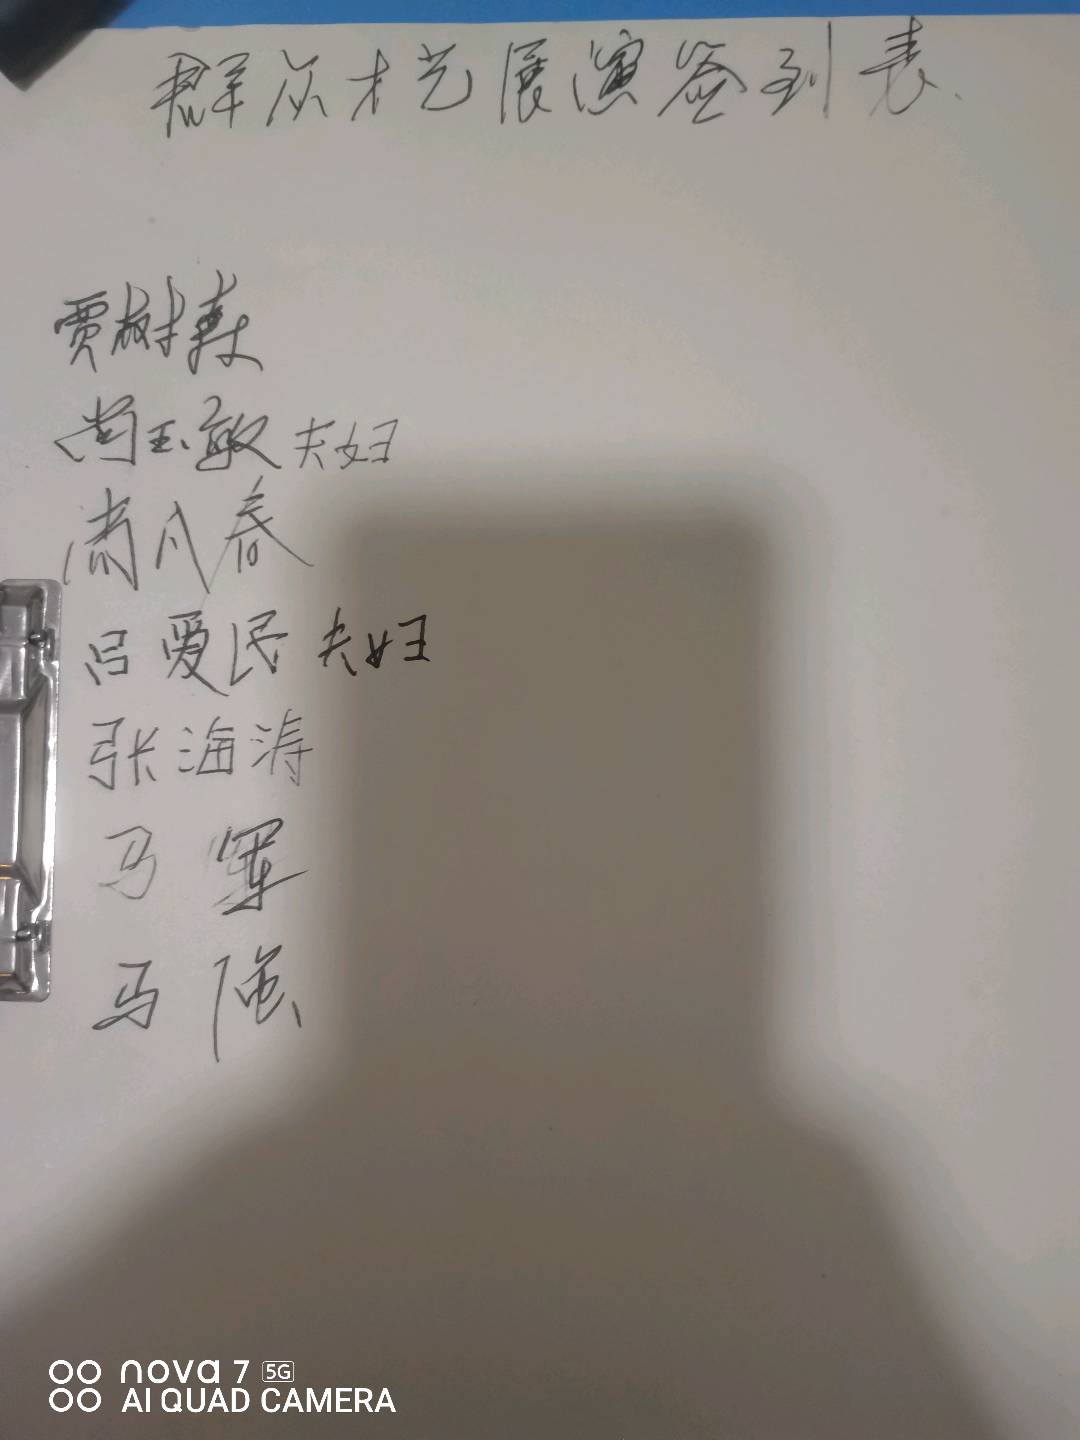 群众才艺展演签到表
贾树森
尚玉敏夫妇
尚凡春
吕爱民夫妇
张海涛
马军
马强
nova 7 5G
AI QUAD CAMERA